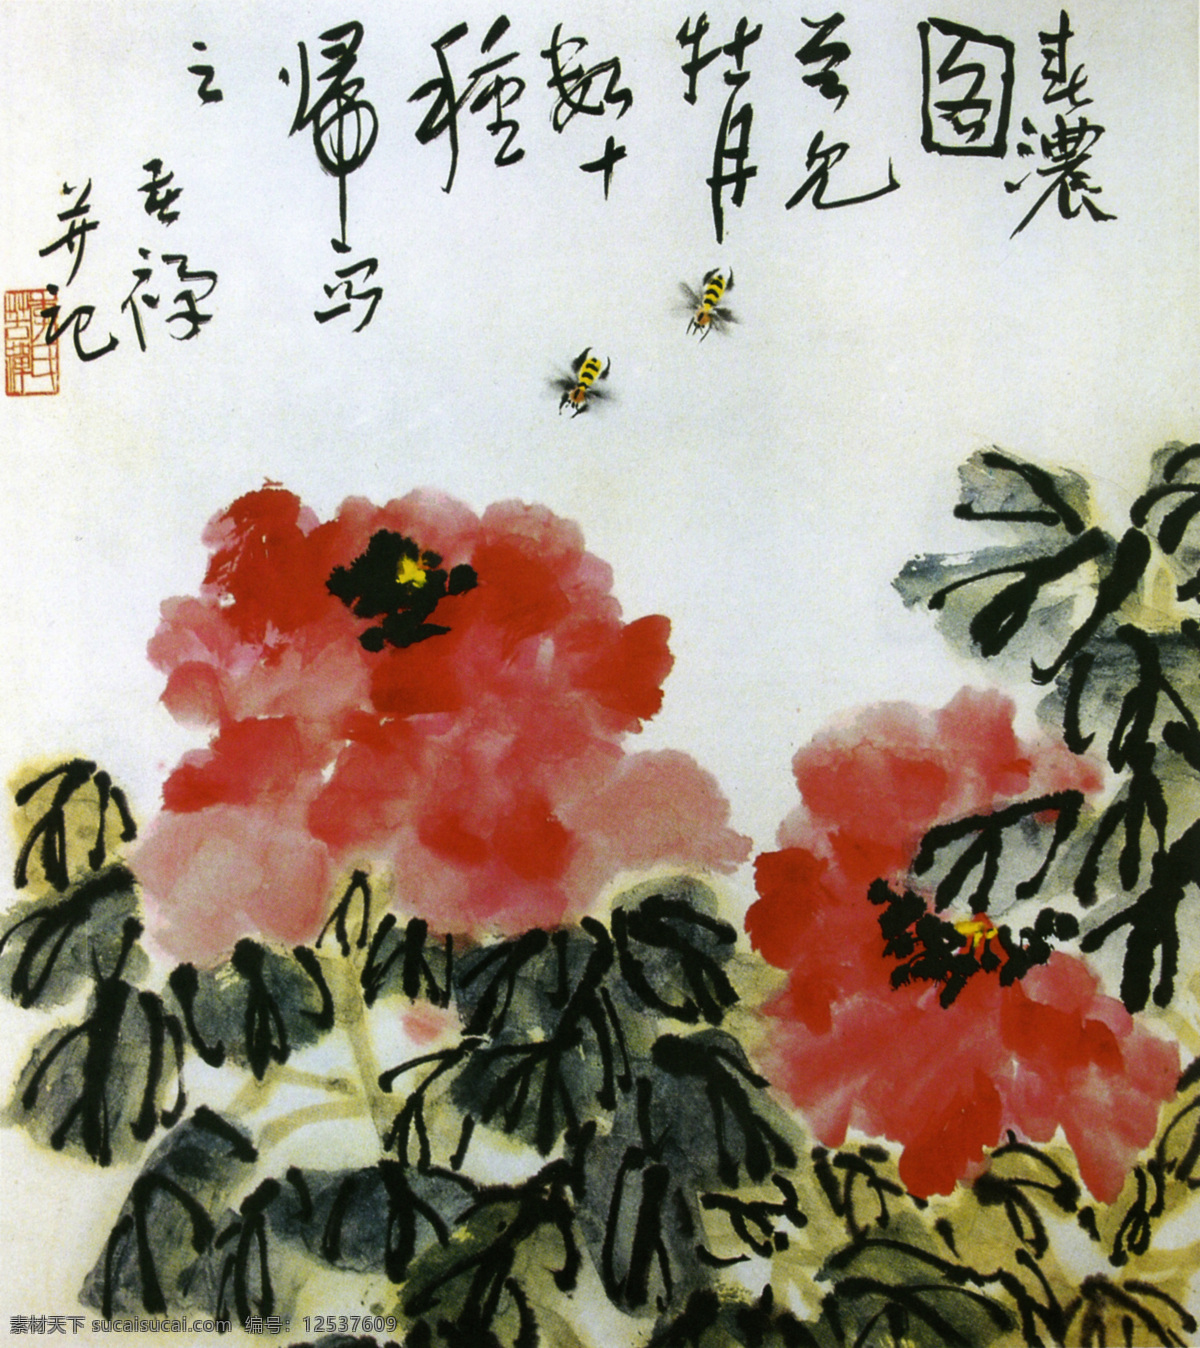 春濃
图
曾见
牡丹
數十
種
歸寫
之
苦禅
并記
素材天下 sucaisucai.com 编号：12537609